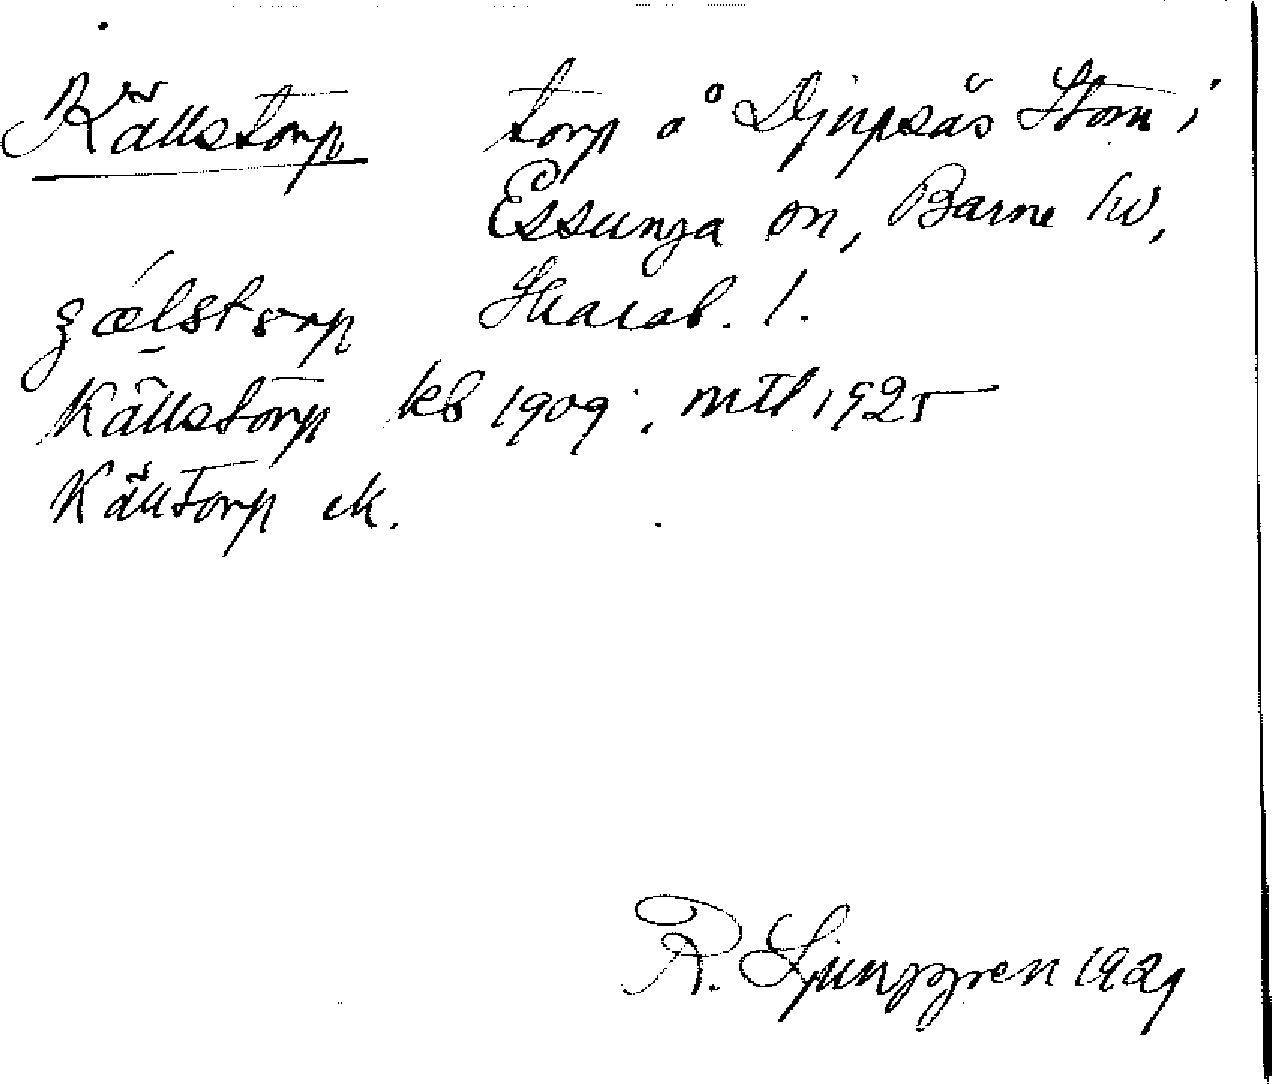 Källstorp torp å Djupsås Stom i
Essunga sn, Barne hd,
Skarab. l.
Källstorp kb 1909, mtl 1925
Källtorp ek.
R. Ljunggren 1929